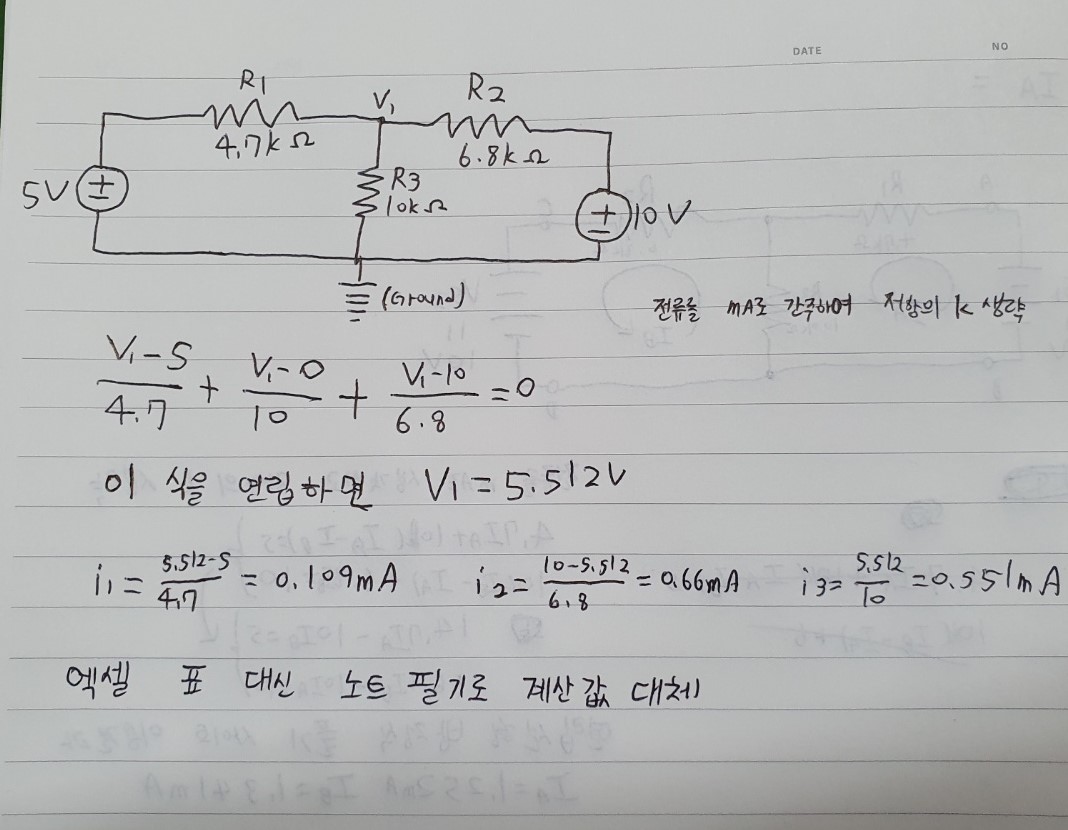 DATE NO
R1 V1 R2
4.7kΩ 6.8kΩ
5V ± R3 10kΩ ± 10V
(Ground)
전류를 mA로 간주하여 저항의 k 생략
(V1-5)/4.7 + (V1-0)/10 + (V1-10)/6.8 = 0
이 식을 연립하면 V1 = 5.512V
i1 = (5.512-5)/4.7 = 0.109mA i2 = (10-5.512)/6.8 = 0.66mA i3 = 5.512/10 = 0.551mA
엑셀 표 대신 노트 필기로 계산값 대체